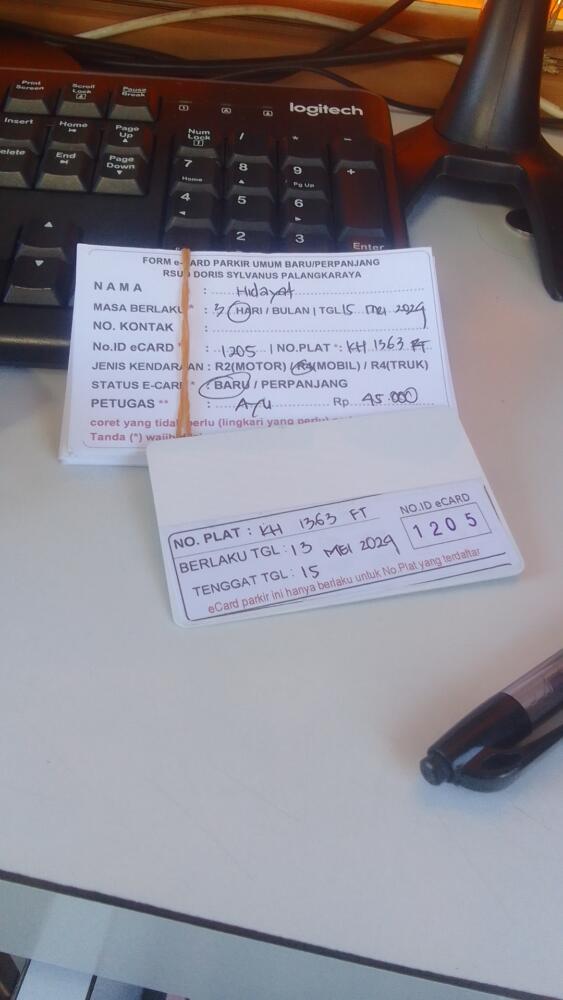 Print Screen
Scroll Lock
Pause Break
logitech
Insert
Home
Page Up
Num Lock
/
*
-
elete
End
Page Down
7 Home
8
9 Pg Up
+
4
5
6
2
3
Enter
FORM e-CARD PARKIR UMUM BARU/PERPANJANG
RSUD DORIS SYLVANUS PALANGKARAYA
NAMA : Hidayat
MASA BERLAKU * : 3 HARI / BULAN | TGL 15 Mei 2024
NO. KONTAK :
No.ID eCARD * : 1205 | NO.PLAT * : KH 1363 FT
JENIS KENDARAAN : R2(MOTOR) / R4(MOBIL) / R4(TRUK)
STATUS E-CARD * : BARU / PERPANJANG
PETUGAS ** : Ayu Rp 45.000
coret yang tidak perlu (lingkari yang perlu)
Tanda (*) wajib
NO. PLAT : KH 1363 FT
NO.ID eCARD
1205
BERLAKU TGL : 13 MEI 2024
TENGGAT TGL : 15
eCard parkir ini hanya berlaku untuk No.Plat yang terdaftar